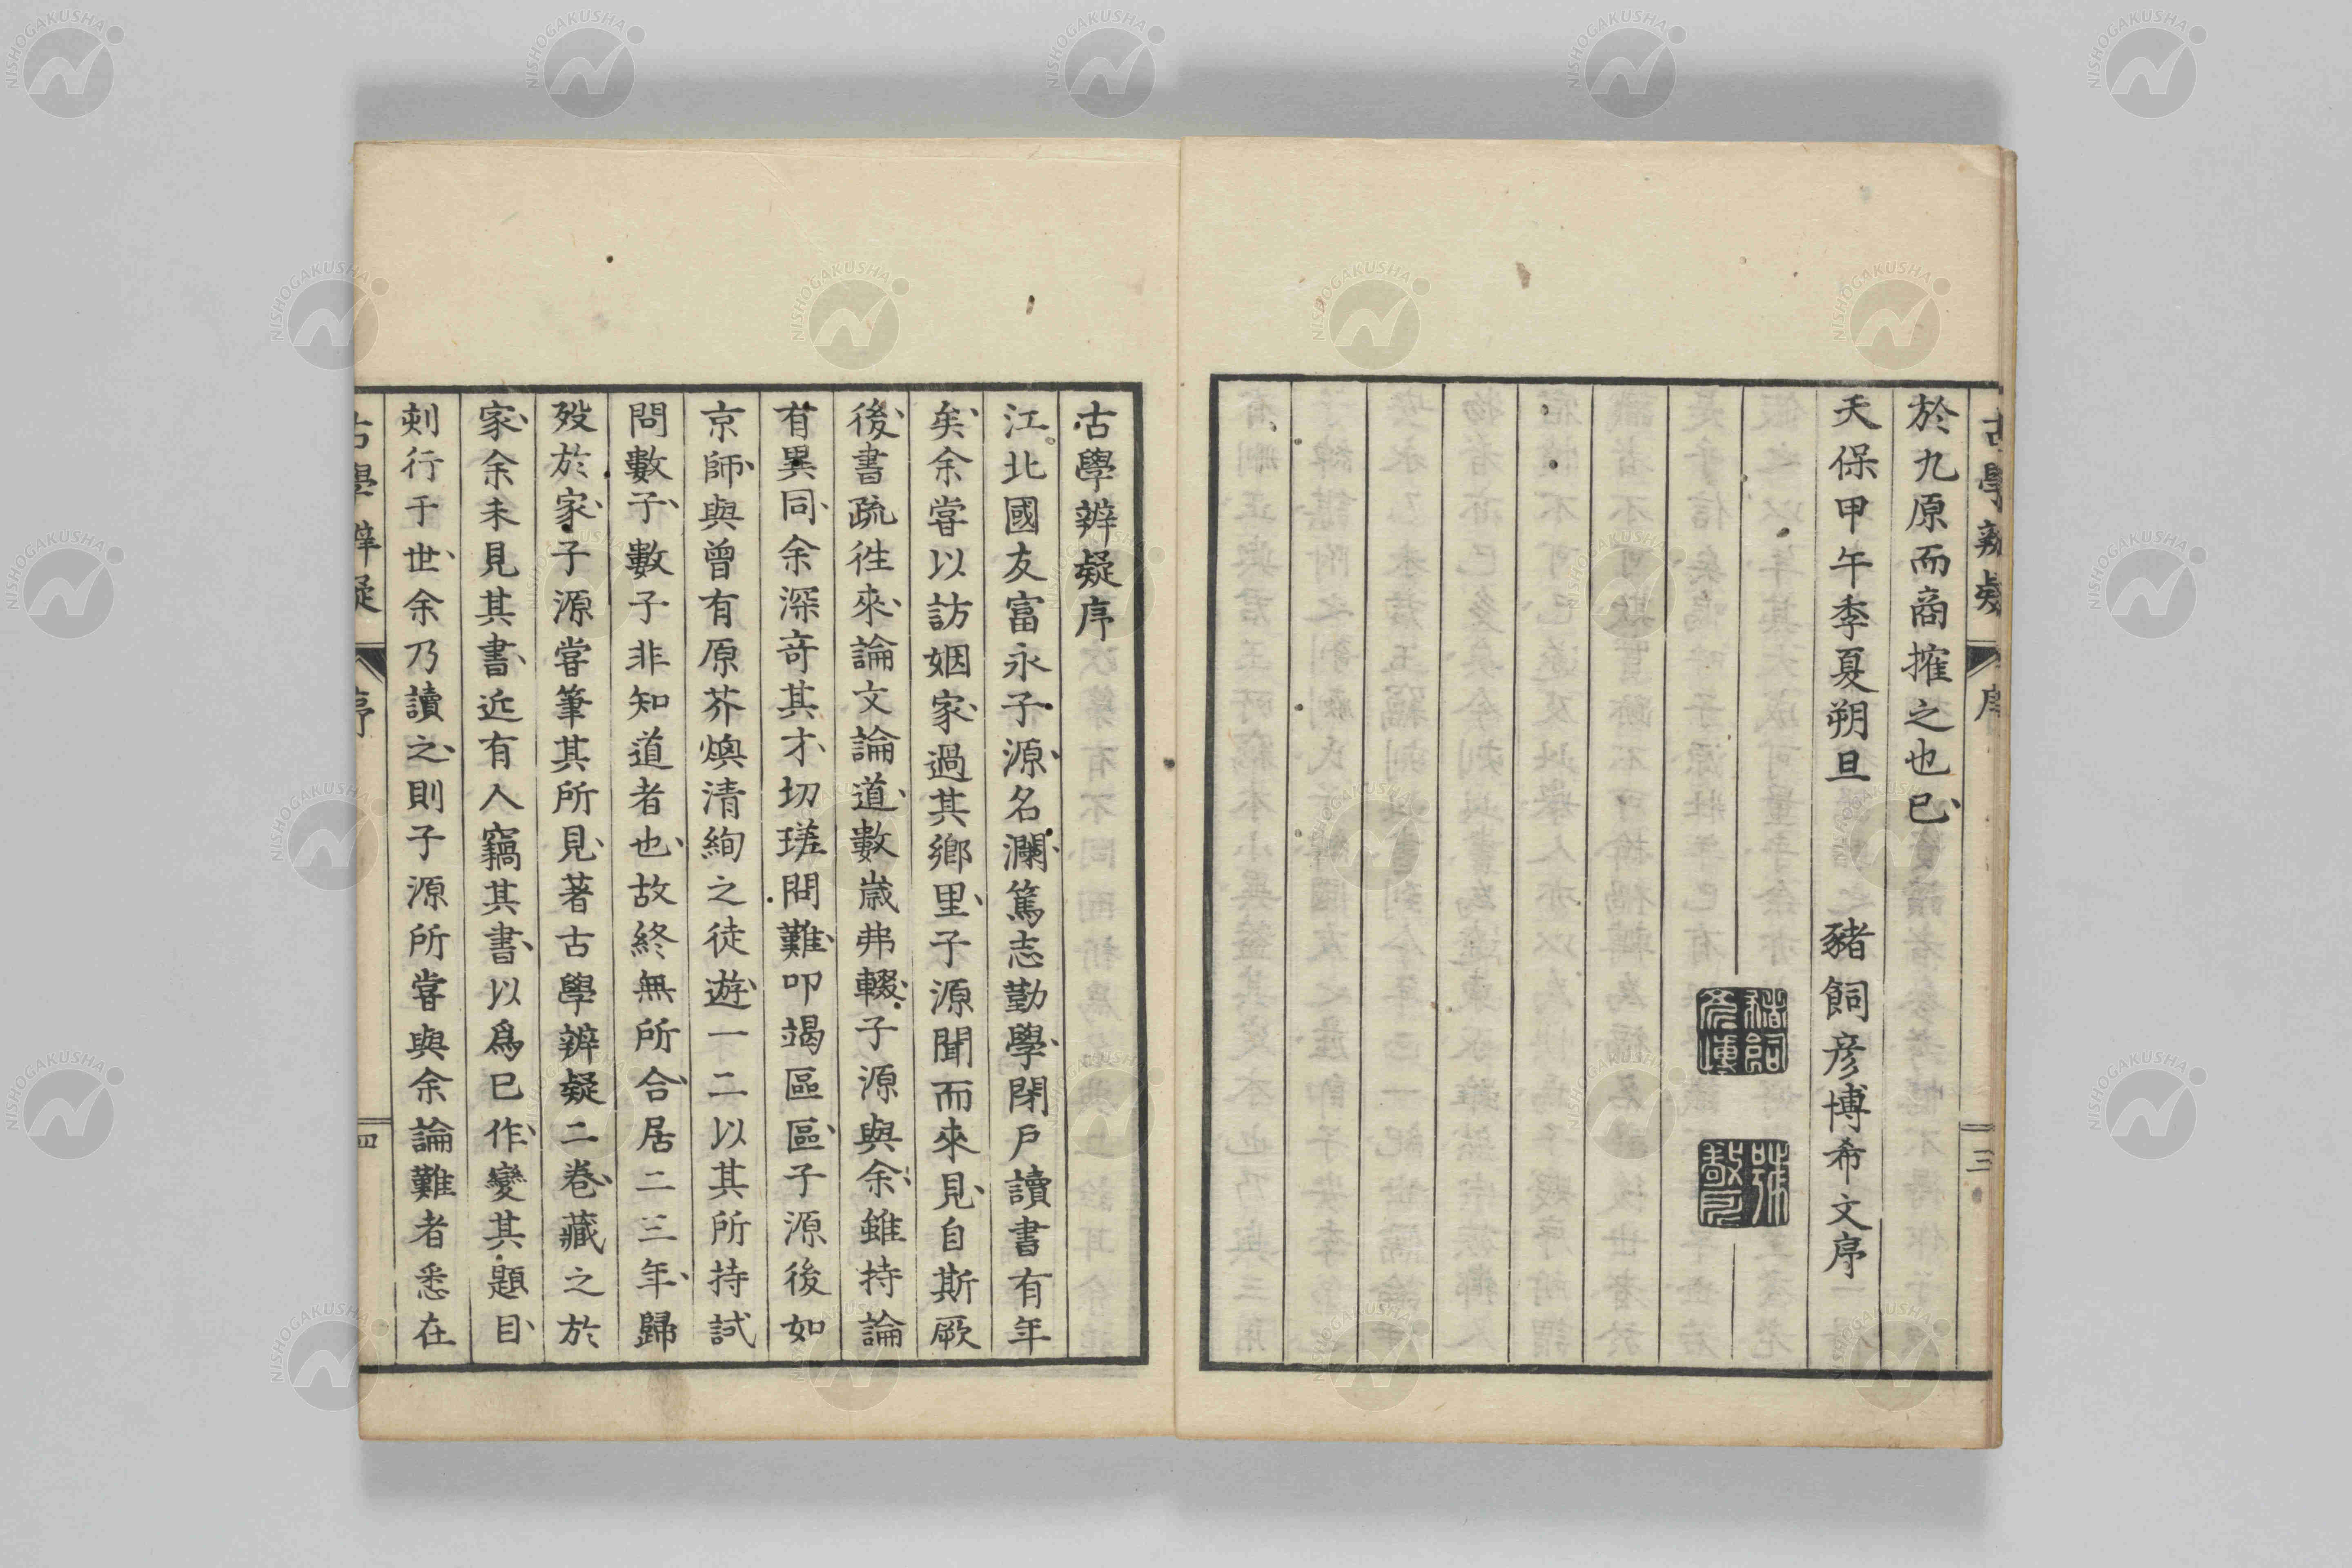 古學辨疑
序
三
於九原而商搉之也已
天保甲午季夏朔旦　豬飼彦博希文序
豬飼彦博
古學辨疑序
江北國友富永子源、名瀾、篤志勤學、閉戶讀書有年
矣、余嘗以訪姻家、過其鄉里、子源聞而來見、自斯厥
後、書疏往來、論文論道、數歲弗輟、子源與余、雖持論
有異同、余深奇其才、切瑳問難、叩竭區區、子源後如
京師、與曾有原芥煥清絢之徒遊、一二以其所持試
問數子、數子非知道者也、故終無所合、居二三年、歸
歿於家、子源嘗筆其所見、著古學辨疑二卷、藏之於
家、余未見其書、近有人竊其書、以爲已作、變其題目、
刺行于世、余乃讀之、則子源所嘗與余論難者悉在
古學辨疑
序
四
NISHOGAKUSHA